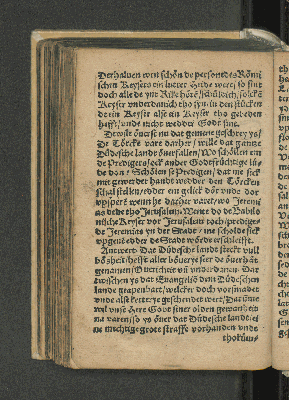 Derhaluen wen schön de persone des Römi
schen Keysers ein böser Heide were / so sint
doch alle de ynt Rike höre / schüldich / solckē
Keyser vnderdenich tho syn / in den stücken
de ein Keyser alse ein Keyser tho gebeden
hefft / vnde nicht wedder Godt sint.
Dewile öuerst nu dat gemene geschrey ys /
De Törcke vare darher / wille dat gantze
Düdesche landt öuerfallen / Wo schölen em
de Predigers ock ander Godtfrüchtige lü-
de don? Schölen se Predigen / dat me sick
mit gewerder handt wedder den Törcken
schal stellen / edder ein gelick dör vnde dör
wysperē wenn he daher varet / wo Jeremi
as dede tho Jerusalem. Wente do de Babilo
nische Keyser vor Jerusalem toch / predige-
de Jeremias yn der Stadt / me scholde sick
vpgeuē edder de Stadt worde erschleifft.
Antwert. Dat Düdesche landt steckt vull
bößheit / hefft aller bouerye seer de öuerhāt
genamen / Ouericheit vn vnderdanen. Dar
twischen ys dat Euangeliō dem Düdeschen
lande geapenbart / welcker doch vorsmadet
vnde alse ketterye geschendet wert / Darüme
wil vnse Here Godt siner olden gewanheit
na varen / so ys öuer dat Düdesche landt ei
ne mechtige grote straffe vorhanden vnde
thokūm-